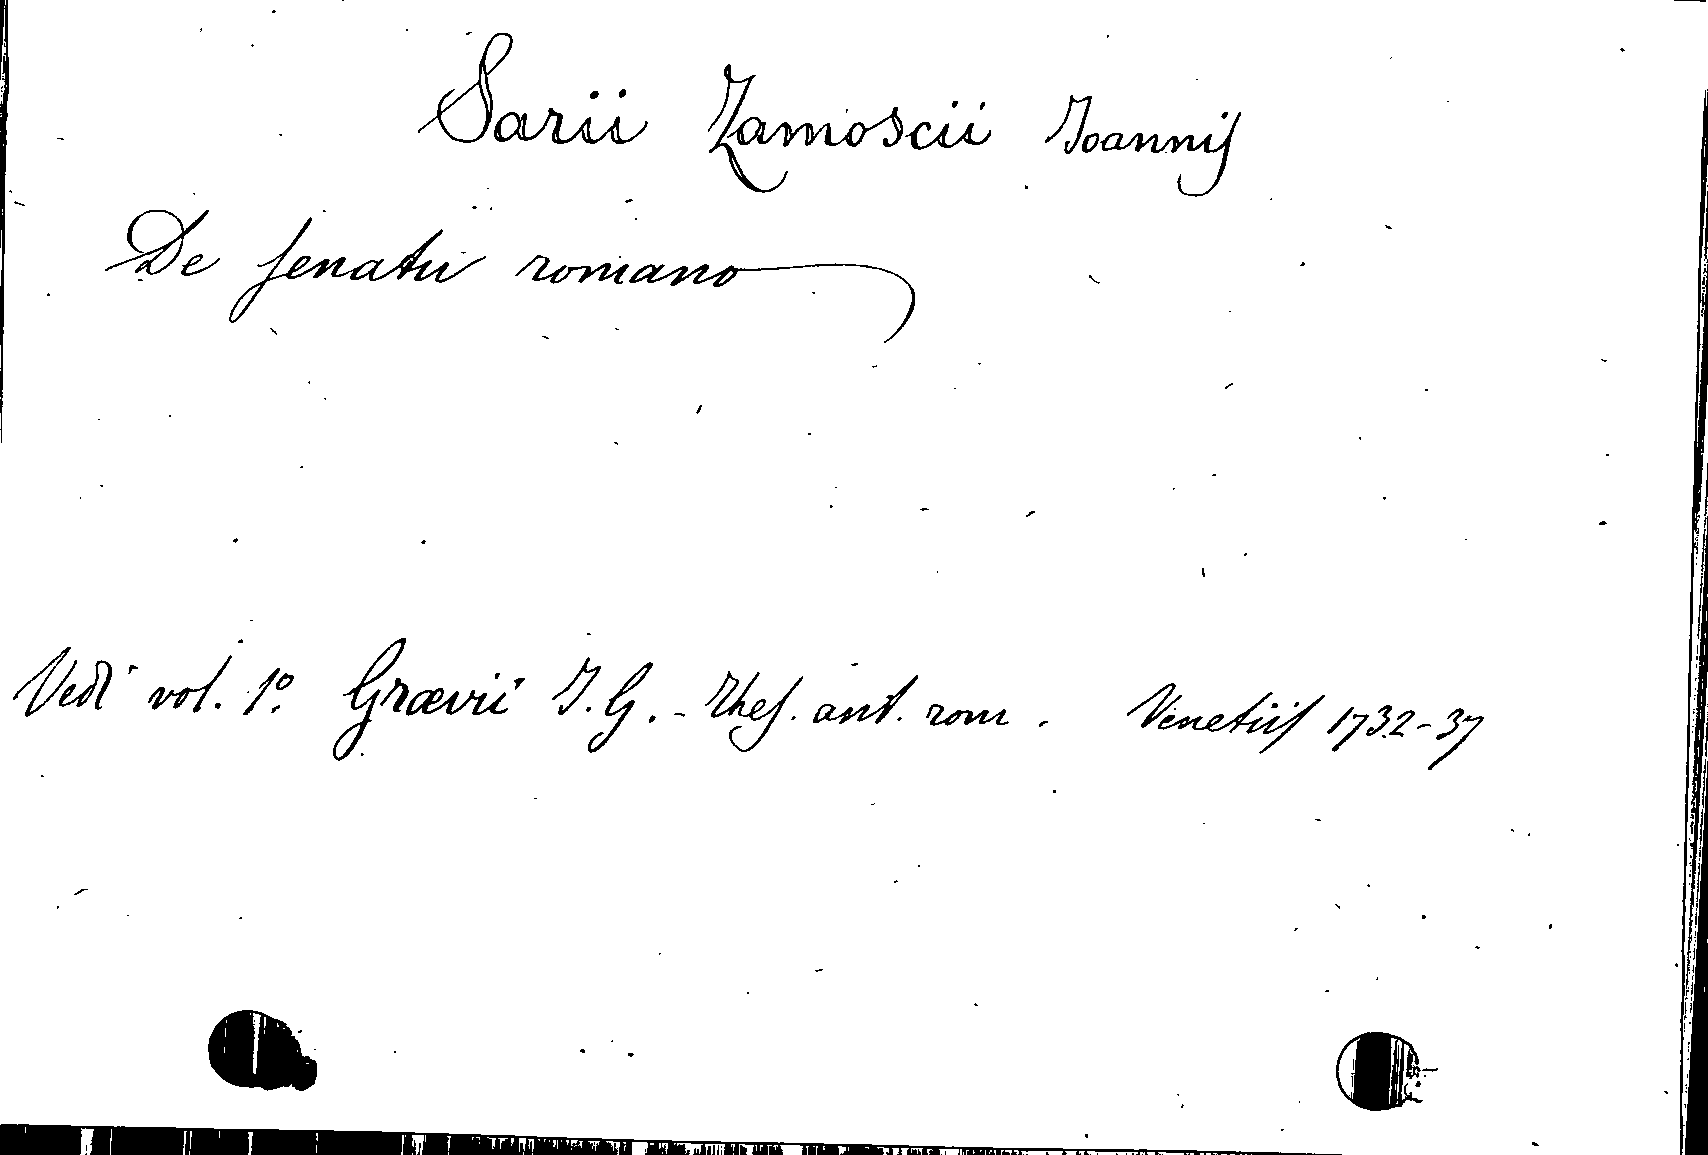 Sarii Zamoscii Joannis
De senatu romano
Vedi vol. 1º. Grævii J. G. - Thes. ant. rom. Venetiis 1732-37